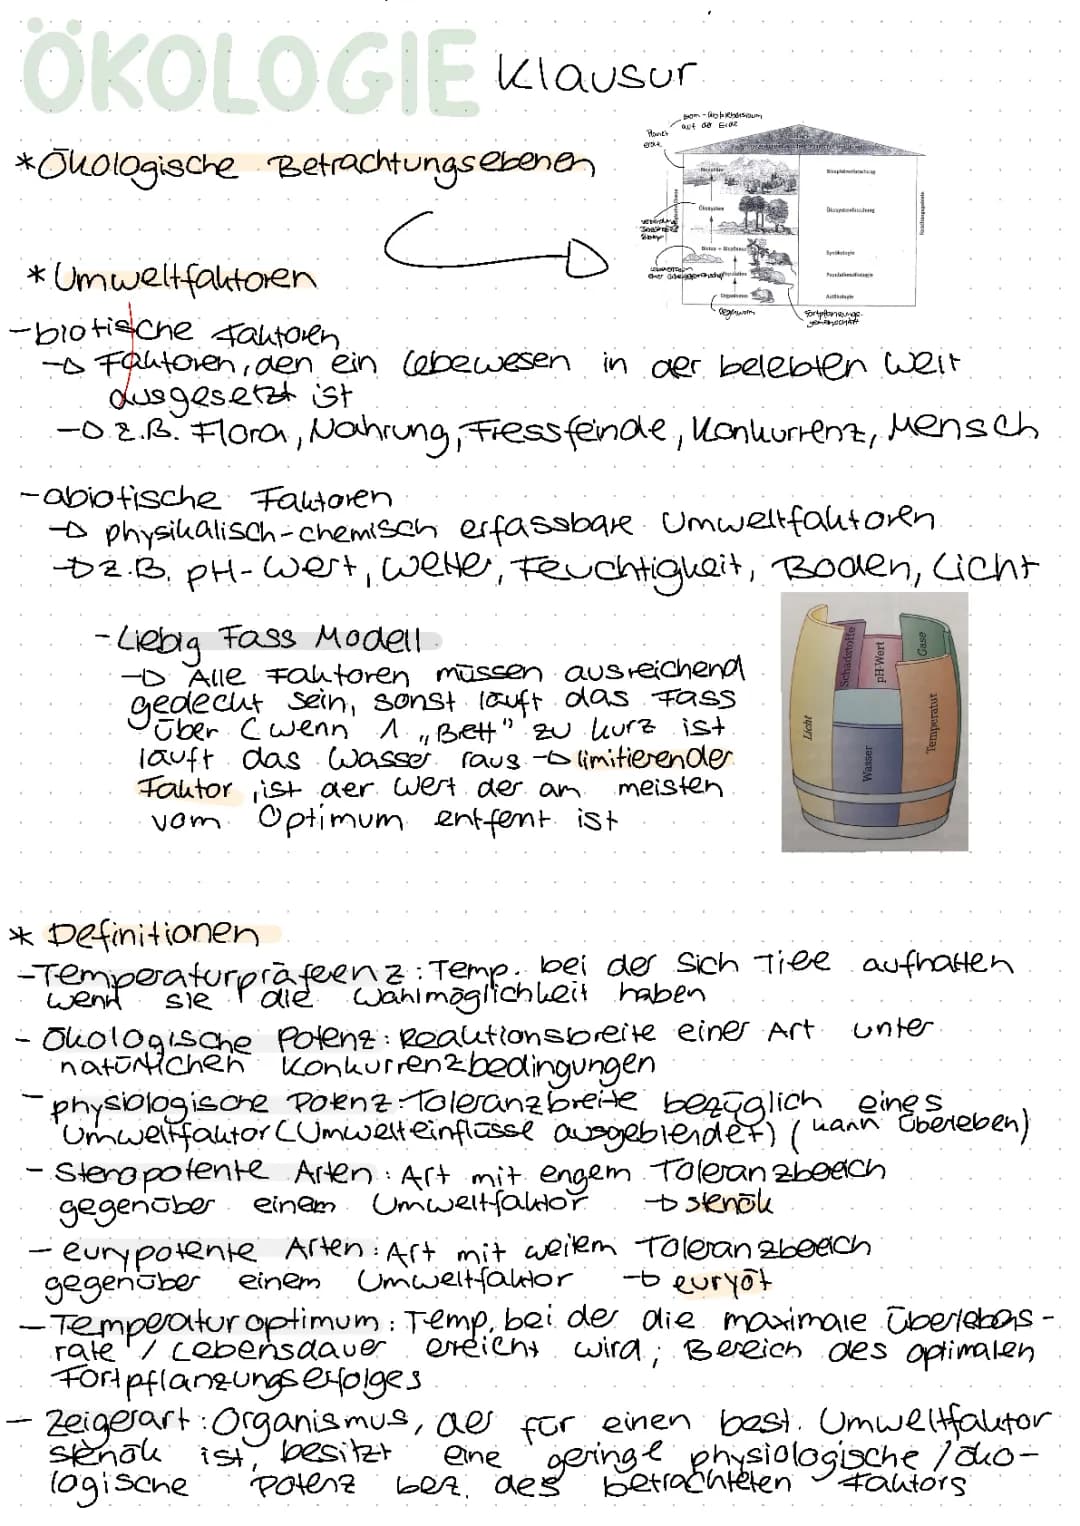 ÖKOLOGIE Klausur
auf der Erde
*Ökologische Betrachtungsebenen
Biosphäre
Biosphärenforschung
Ökosystem
Ökosystemforschung
Synökologie
Population
Populationsökologie
Organismus
Autökologie
Fortpflanzungs-
gemeinschaft
* Umweltfaktoren
-biotische Faktoren
→ Faktoren, den ein Lebewesen in der belebten Welt
ausgesetzt ist
→ z.B. Flora, Nahrung, Fressfeinde, Konkurrenz, Mensch
-abiotische Faktoren
→ physikalisch-chemisch erfassbare Umweltfaktoren
→ z.B. pH-Wert, Wetter, Feuchtigkeit, Boden, Licht
-Liebig Fass Modell
→ Alle Faktoren müssen ausreichend
gedeckt sein, sonst läuft das Fass
über (wenn 1 „Brett" zu kurz ist
läuft das Wasser raus → limitierender
Faktor, ist der Wert der am meisten
vom Optimum entfernt ist
Licht
Schadstoffe
pH-Wert
Gase
Wasser
Temperatur
* Definitionen
-Temperaturpräfeenz: Temp. bei der sich Tiee aufhalten
wenn sie die Wahlmöglichkeit haben
- Ökologische Potenz: Reaktionsbreite einer Art unter
natürlichen Konkurrenzbedingungen
- physiologische Potenz: Toleranzbreite bezüglich eines
Umweltfaktor (Umwelteinflüsse ausgeblendet) (kann überleben)
- Steropotente Arten: Art mit engem Toleranzbeeich
gegenüber einem Umweltfaktor → stenök
- eurypotente Arten: Art mit weitem Toleranzbeeich
gegenüber einem Umweltfaktor → euryöt
- Temperaturoptimum: Temp. bei der die maximale Überlebens-
rate / Lebensdauer erreicht wird; Bereich des optimalen
Fortpflanzungserfolges
- Zeigerart: Organismus, der für einen best. Umweltfaktor
stenök ist, besitzt eine geringe physiologische / öko-
logische Potenz bez. des betrachteten Faktors